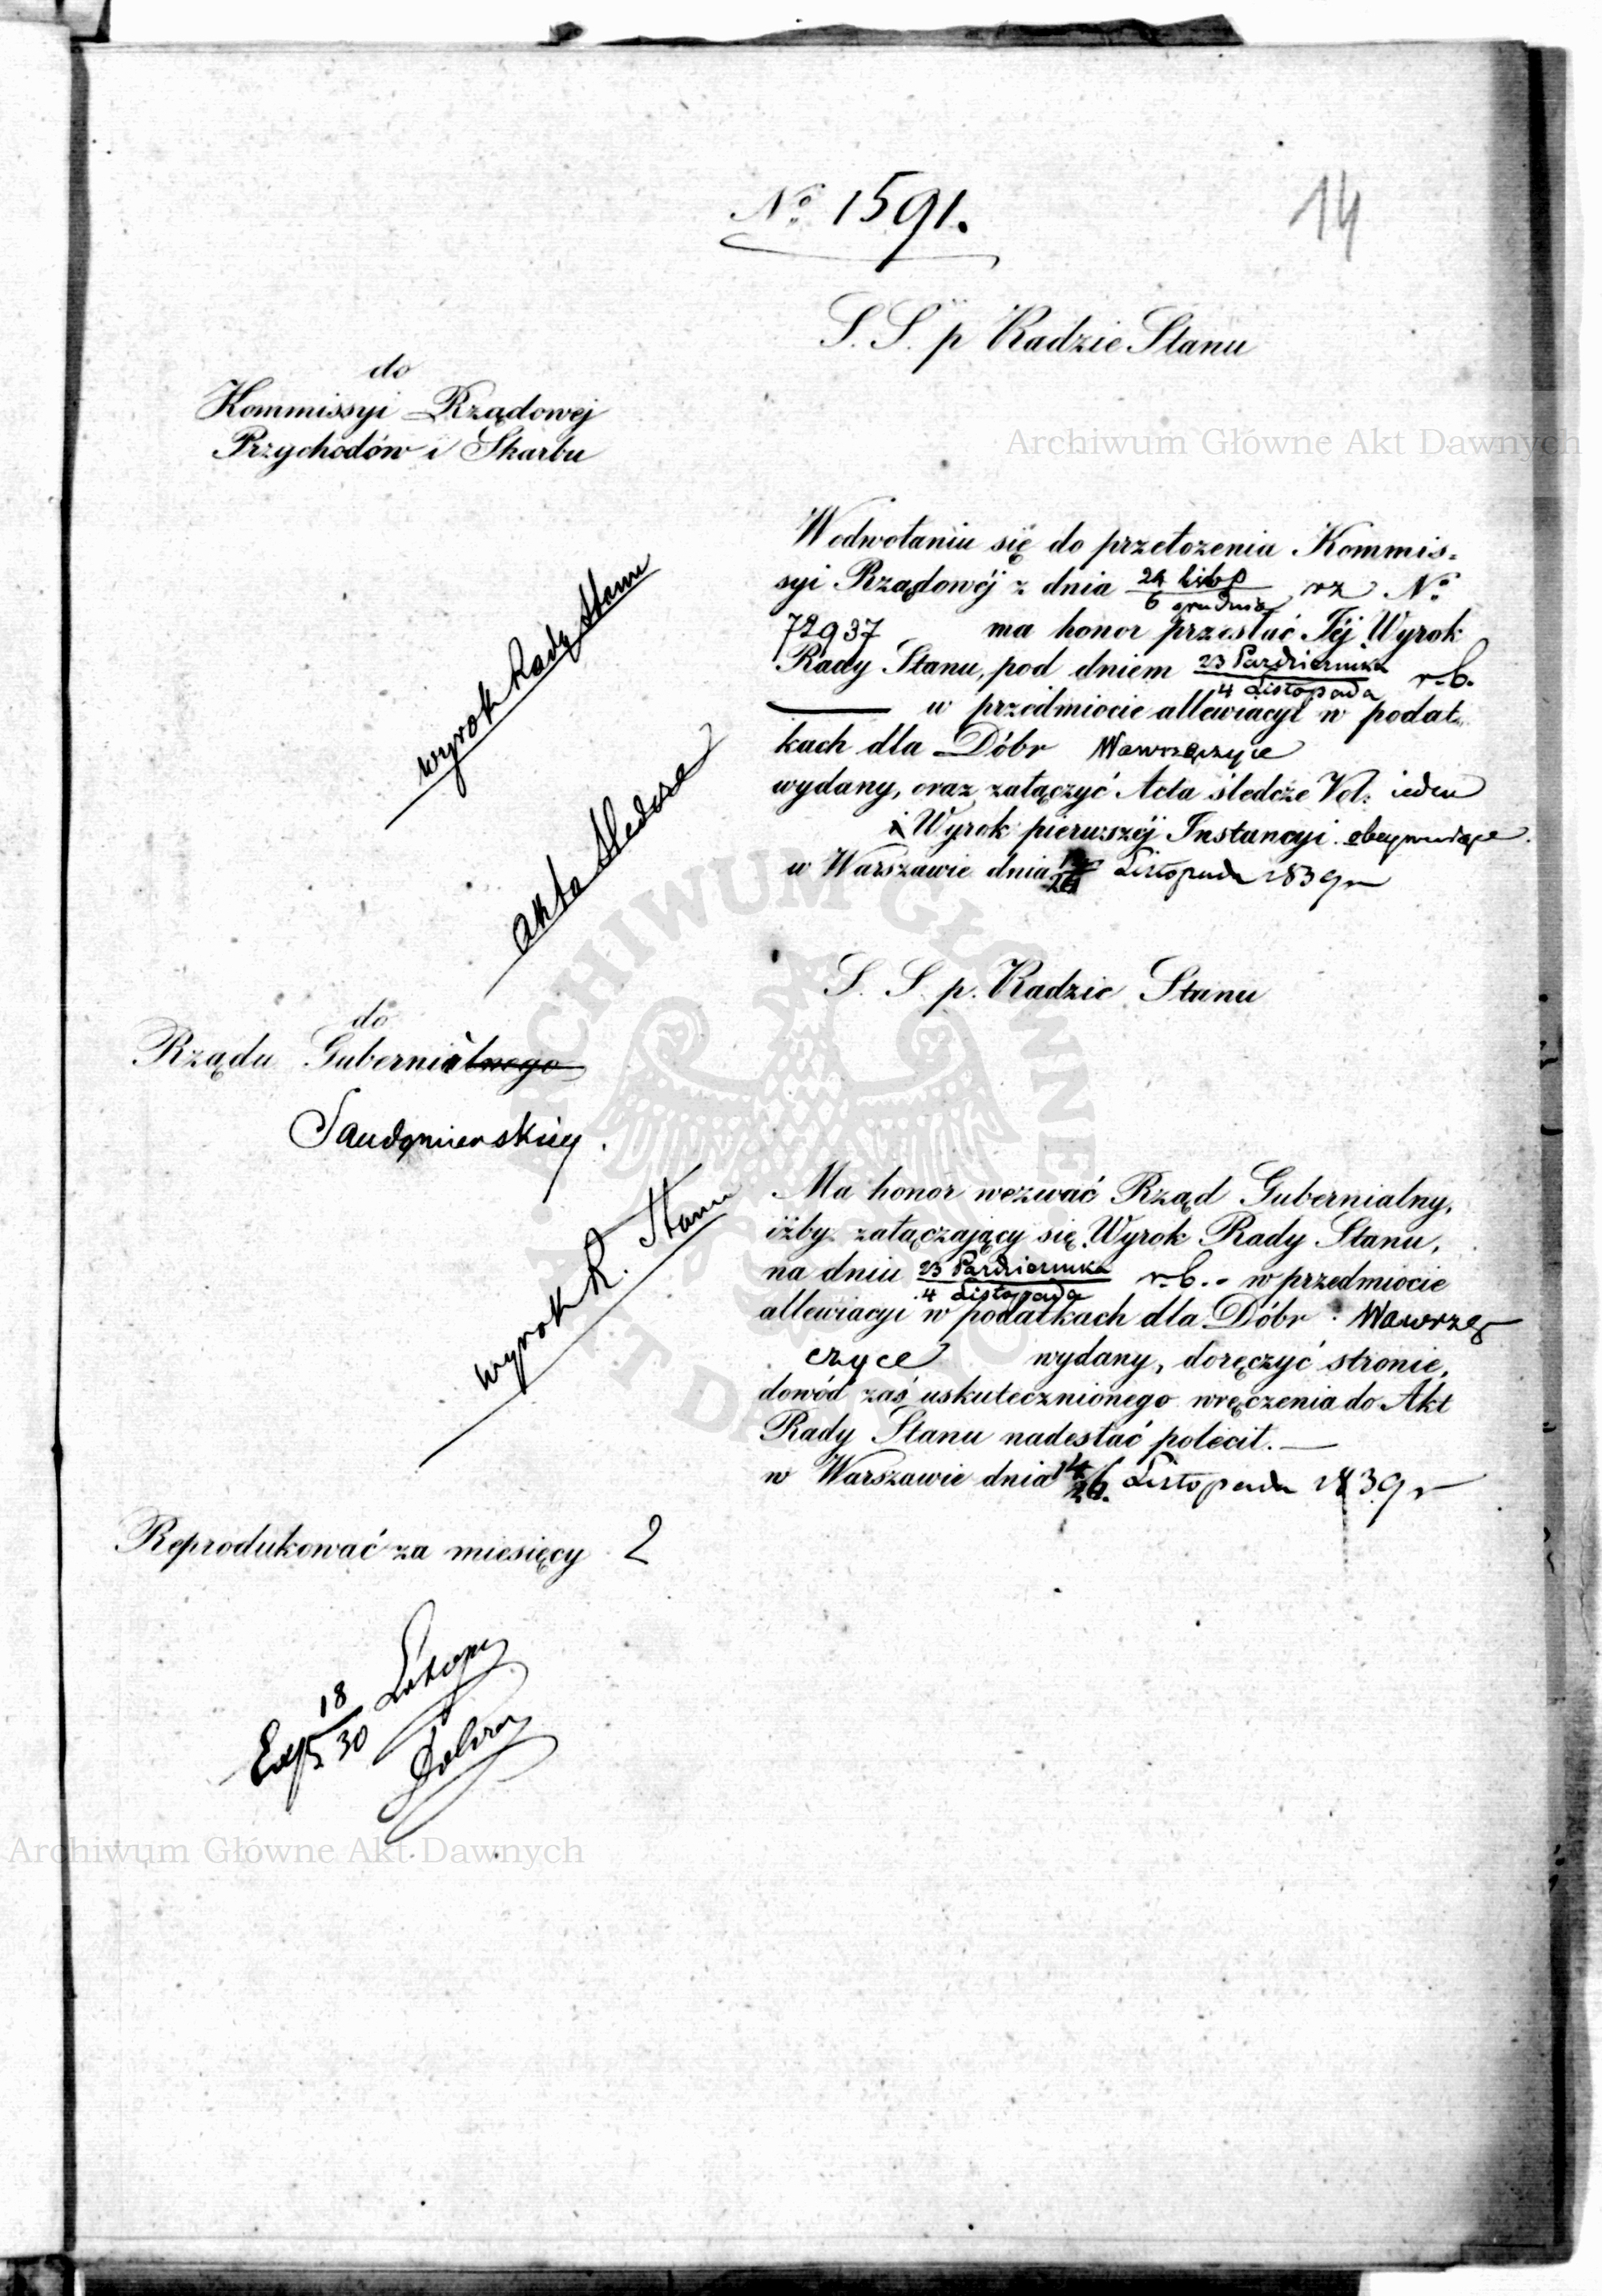 No 1591.
14
S. S. p Radzie Stanu
do
Kommissyi Rządowej
Przychodów i Skarbu
Archiwum Główne Akt Dawnych
W odwołaniu się do przełożenia Kommis=
syi Rządowéj z dnia 24 Listop / 6 grudnia rz No
72937 ma honor przesłać Jéj Wyrok
Rady Stanu, pod dniem 23 Października / 4 Listopada r.b.
w przedmiocie allewiacyi w podat=
kach dla Dóbr Wawrzęczyce
wydany, oraz załączyć Acta śledcze Vol: ieden
i Wyrok pierwszéj Instancyi obeymuiące.
w Warszawie dnia Listopada 1839 r
wyrok Rady Stanu
akta śledcze
S. S. p. Radzie Stanu
do
Rządu Gubernialnego
Sandomierskiey.
Ma honor wezwać Rząd Gubernialny,
iżby załączający się Wyrok Rady Stanu,
na dniu 23 Października / 4 Listopada r.b. w przedmiocie
allewiacyi w podatkach dla Dóbr Wawrzę
czyce wydany, doręczyć stronie,
dowód zaś uskutecznionego wręczenia do Akt
Rady Stanu nadesłać polecił.—
w Warszawie dnia 14/26. Listopada 1839 r
wyrok R. Stanu
Reprodukować za miesięcy 2
Exp 18/30 Listopa
Archiwum Główne Akt Dawnych
ARCHIWUM GŁÓWNE AKT DAWNYCH